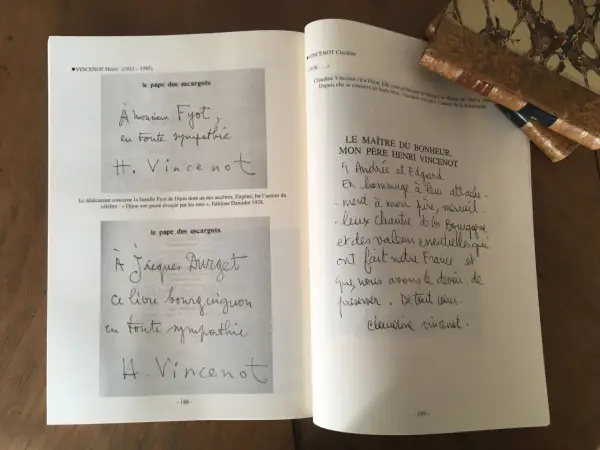 ●VINCENOT Henri (1912 – 1985).
le pape des escargots
À monsieur Fyot,
en toute sympathie
H. Vincenot
Le dédicataire concerne la famille Fyot de Dijon dont un des ancêtres, Eugène, fut l'auteur du
célèbre : « Dijon son passé évoqué par les rues », Editions Damidot 1928.
le pape des escargots
À Jacques Durget
ce livre bourguignon
en toute sympathie
H. Vincenot
- 188 -
●VINCENOT Claudine
Claudine Vincenot vit à Dijon. Elle
Depuis elle se consacre
LE MAÎTRE DU BONHEUR,
MON PÈRE HENRI VINCENOT
à Andrée et Edgard
En hommage à leur attache-
-ment à mon père, merveil-
-leux chantre de la Bourgogne
et des valeurs essentielles qui
ont fait notre France et
que nous avons le devoir de
préserver. De tout cœur.
Claudine Vincenot.
- 189 -